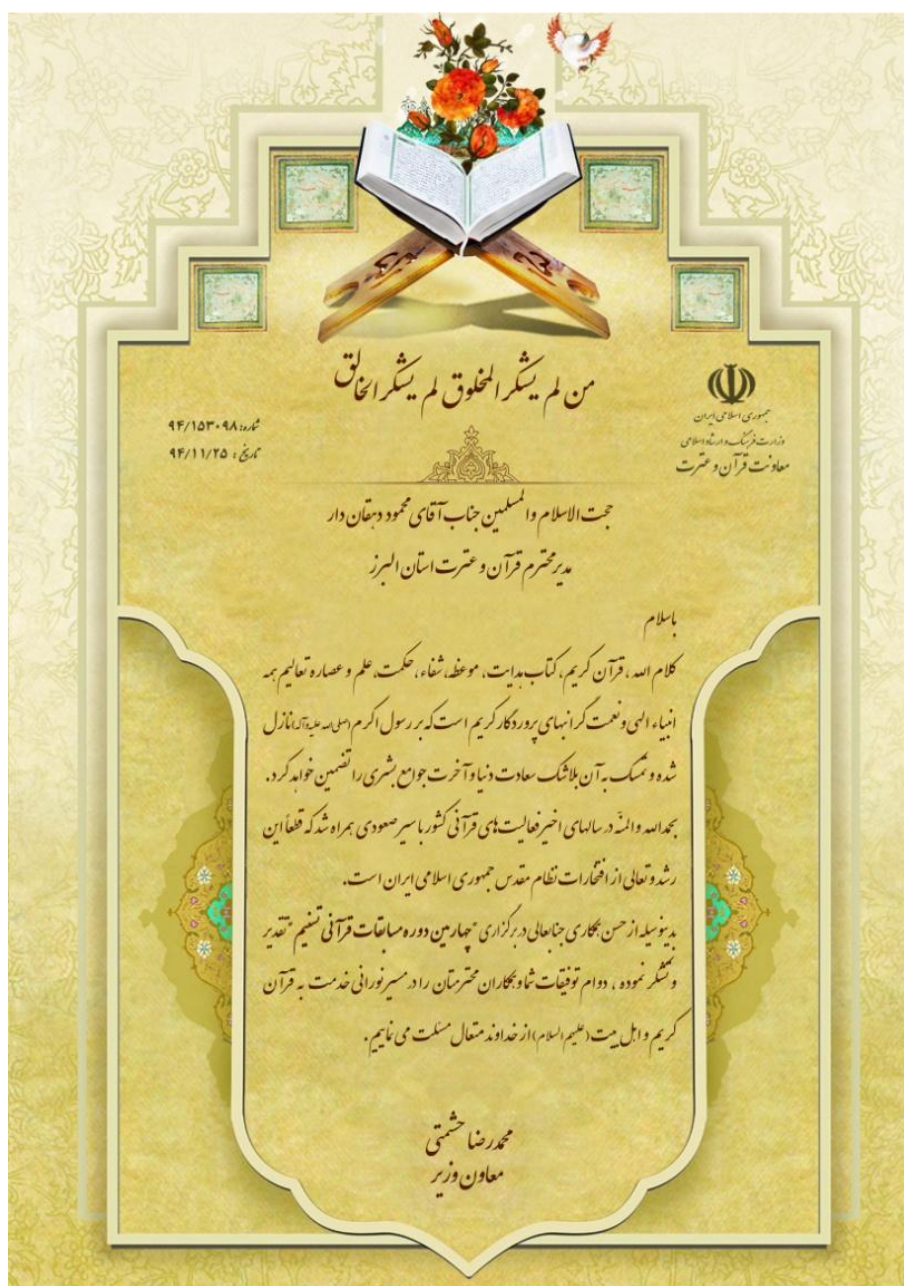 من لم یشکر المخلوق لم یشکر الخالق
جمهوری اسلامی ایران
وزارت فرهنگ و ارشاد اسلامی
معاونت قرآن و عترت
شماره: ۹۴/۱۵۳۰۹۸
تاریخ: ۹۴/۱۱/۲۵
حجت الاسلام والمسلمین جناب آقای محمود دهقان دار
مدیر محترم قرآن و عترت استان البرز
باسلام
کلام الله، قرآن کریم، کتاب هدایت، موعظه، شفاء، حکمت، علم و عصاره تعالیم همه
انبیاء الهی و نعمت گرانبهای پروردگار کریم است که بر رسول اکرم (صلی الله علیه وآله) نازل
شده و تمسک به آن بلاشک سعادت دنیا و آخرت جوامع بشری را تضمین خواهد کرد.
بحمدالله والمنّه در سالهای اخیر فعالیت های قرآنی کشور با سیر صعودی همراه شد که قطعاً این
رشد و تعالی از افتخارات نظام مقدس جمهوری اسلامی ایران است.
بدینوسیله از حسن همکاری جنابعالی در برگزاری "چهارمین دوره مسابقات قرآنی تسنیم" تقدیر
و تشکر نموده، دوام توفیقات شما و همکاران محترمتان را در مسیر نورانی خدمت به قرآن
کریم و اهل بیت (علیهم السلام) از خداوند متعال مسئلت می نماییم.
محمدرضا حشمتی
معاون وزیر